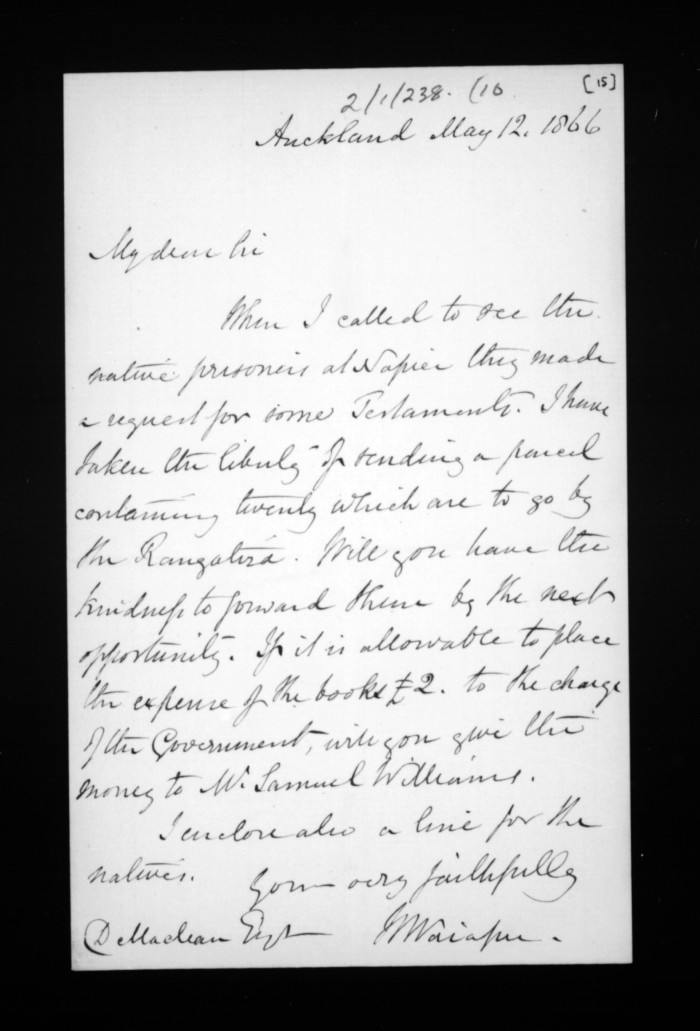 [15]
2/1/238. (16
Auckland May 12. 1866
My dear Sir
When I called to see the
native prisoners at Napier they made
a request for some Testaments. I have
taken the liberty of sending a parcel
containing twenty which are to go by
the Rangatira. Will you have the
kindness to forward them by the next
opportunity. If it is allowable to place
the expense of the books £2. to the charge
of the Government, will you give the
money to Mr Samuel Williams.
I enclose also a line for the
natives.
Yours very faithfully
D Maclean Esqr W Waiapu.